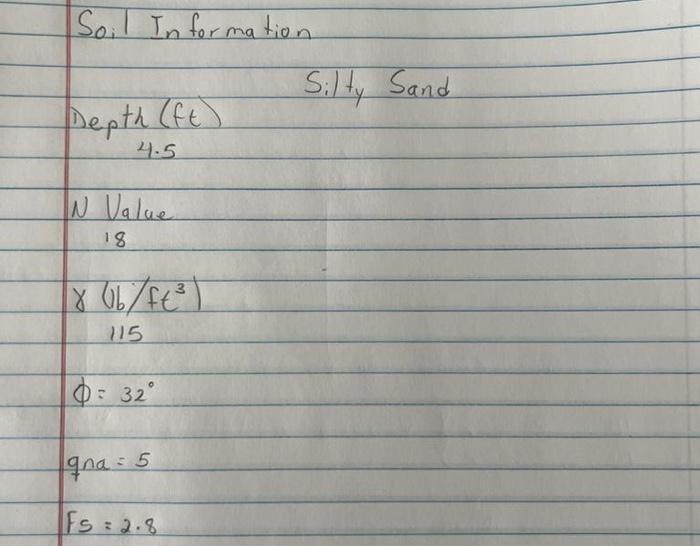 Soil Information
Silty Sand
Depth (ft)
4.5
N Value
18
γ (lb/ft³)
115
ϕ = 32°
qna = 5
Fs = 2.8